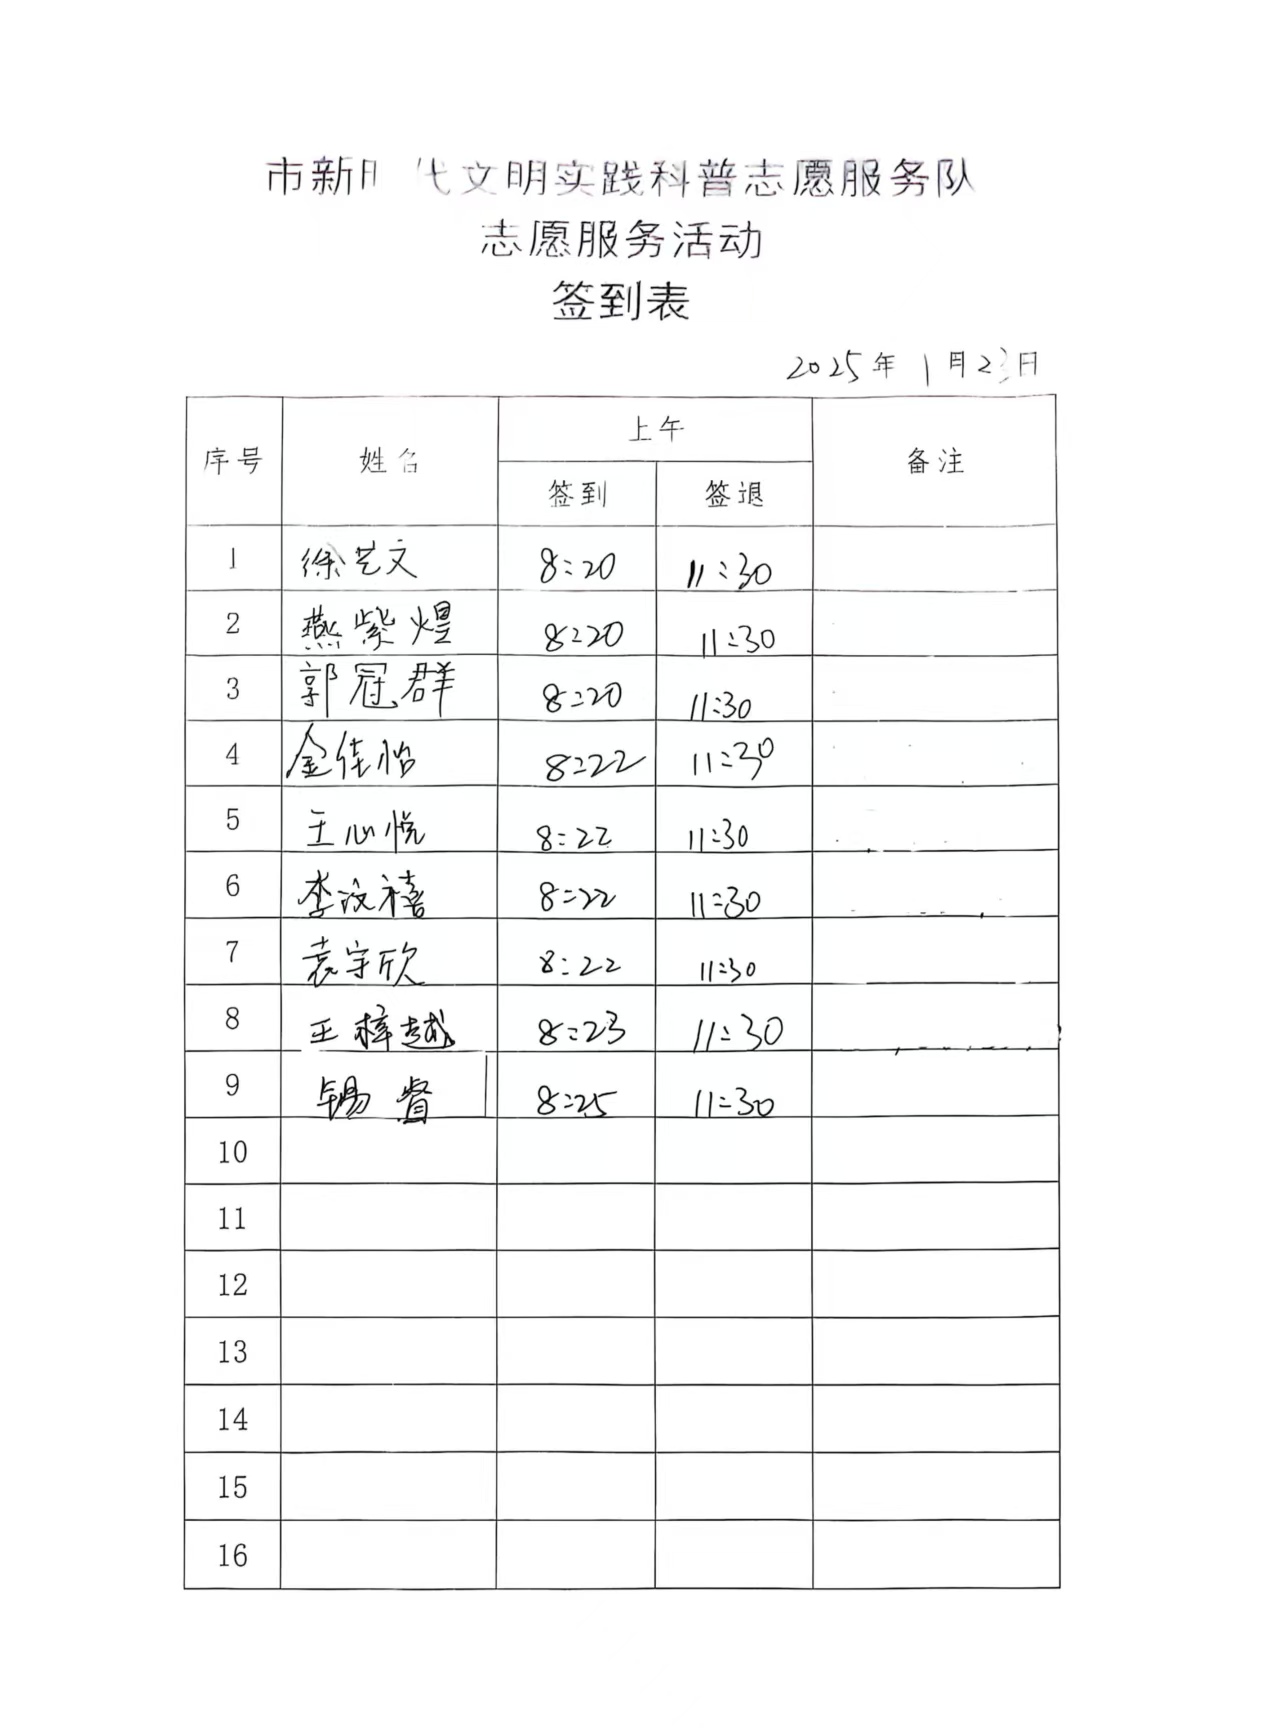 市新时代文明实践科普志愿服务队
志愿服务活动
签到表
2025年1月23日
序号 姓名 上午 备注
签到 签退
1 徐艺文 8:20 11:30
2 燕紫煜 8:20 11:30
3 郭冠群 8:20 11:30
4 金佳怡 8:22 11:30
5 王心悦 8:22 11:30
6 李汶禧 8:22 11:30
7 袁宇欣 8:22 11:30
8 王梓越 8:23 11:30
9 8:25 11:30
10
11
12
13
14
15
16